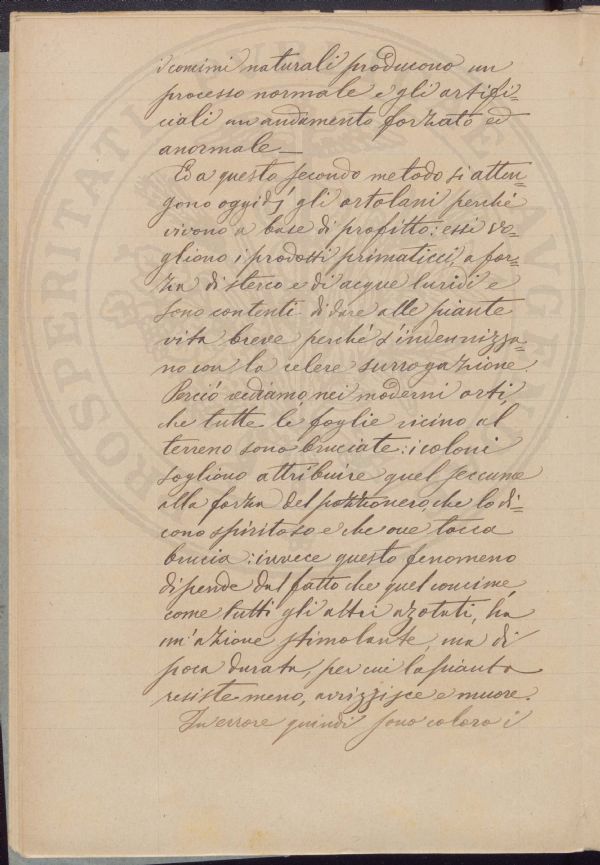 i concimi naturali producono un
processo normale e gli artifi-
ciali un andamento forzato ed
anormale.—
Ed a questo secondo metodo si atten-
gono oggidì gli ortolani perché
vivono a base di profitto: essi vo-
gliono i prodotti primaticci, a for-
za di sterco e di acque luridi e
sono contenti di dare alle piante
vita breve perché s'indennizza-
no con la celere surrogazione.
Perciò vediamo, nei moderni orti,
che tutte le foglie vicino al
terreno sono bruciate: i coloni
sogliono attribuire quel seccume
alla forza del pozzonero, che lo di-
cono spiritoso e che ove tocca
brucia: invece questo fenomeno
dipende dal fatto che quel concime,
come tutti gli altri azotati, ha
un'azione stimolante, ma di
poca durata, per cui la pianta
resiste meno, avvizzisce e muore.
In errore quindi sono coloro i
PROSPERITATI AVGENDAE